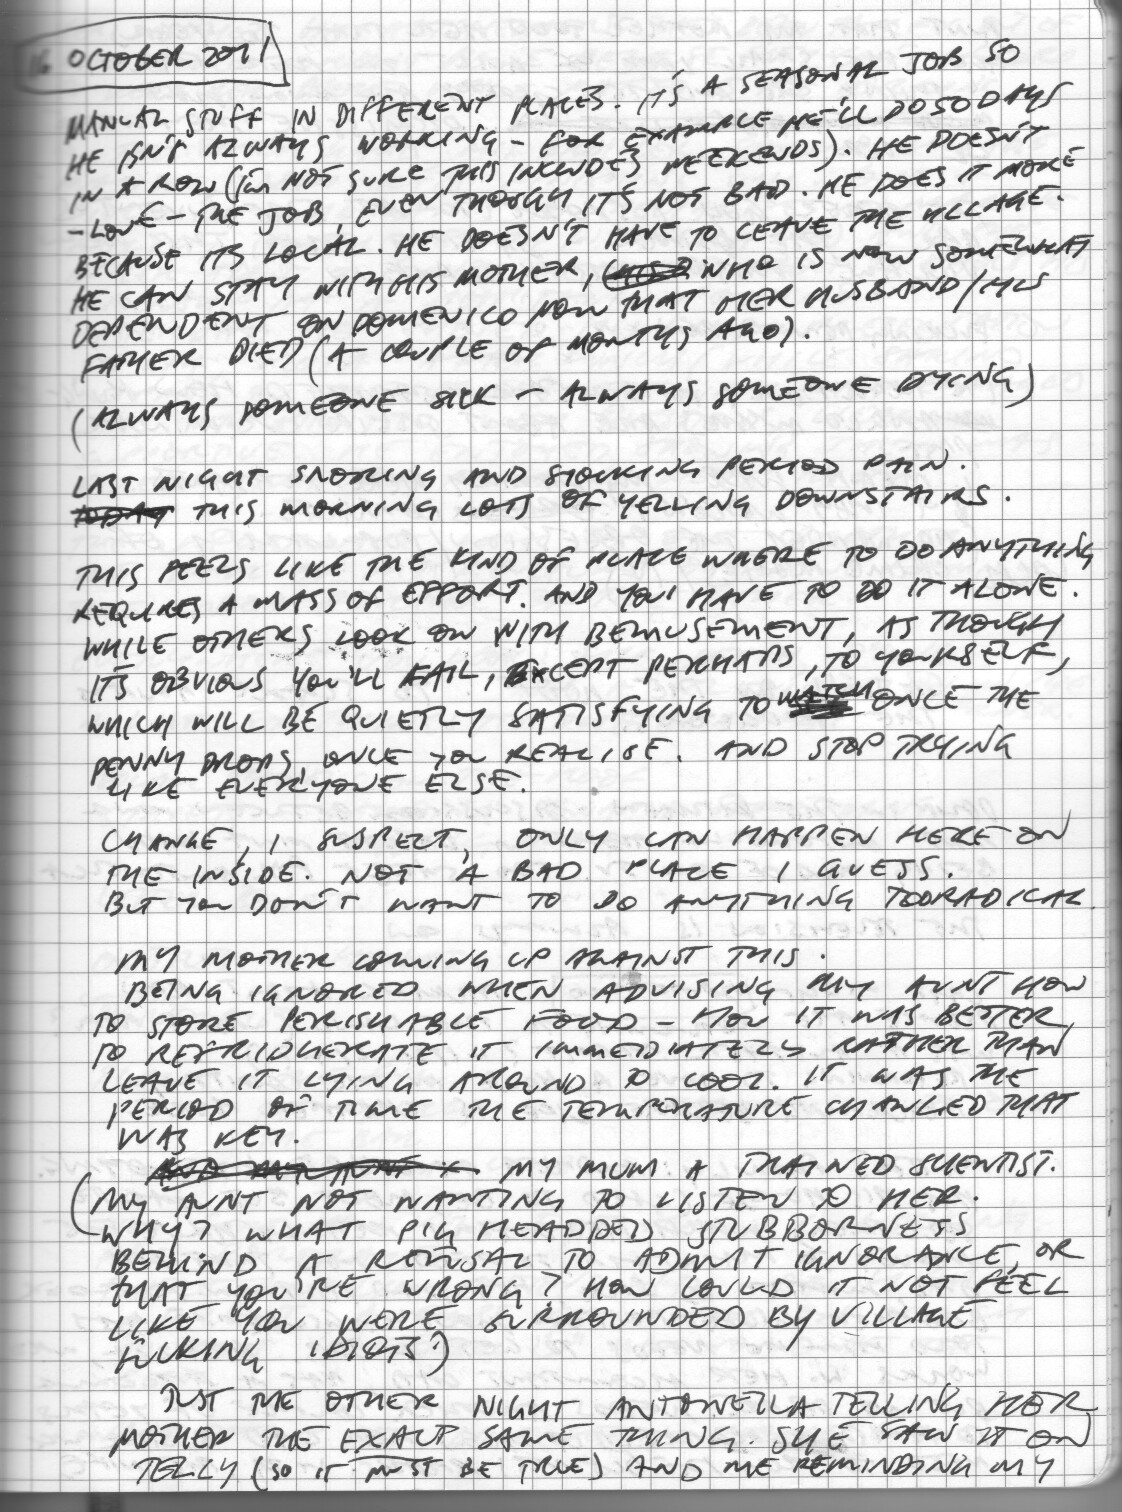 16 OCTOBER 2011
MANUAL STUFF IN DIFFERENT PLACES. IT'S A SEASONAL JOB SO
HE ISN'T ALWAYS WORKING - FOR EXAMPLE HE'LL DO 50 DAYS
IN A ROW (I'm NOT SURE THIS INCLUDES WEEKENDS). HE DOESN'T
- LOVE - THE JOB, EVEN THOUGH IT'S NOT BAD. HE DOES IT MORE
BECAUSE IT'S LOCAL. HE DOESN'T HAVE TO LEAVE THE VILLAGE.
HE CAN STAY WITH HIS MOTHER, WHO IS NOW SOMEWHAT
DEPENDENT ON DOMENICO NOW THAT HER HUSBAND/HIS
FATHER DIED (A COUPLE OF MONTHS AGO).
(ALWAYS SOMEONE SICK - ALWAYS SOMEONE DYING)
LAST NIGHT SNORING AND SHOCKING PERIOD PAIN.
TODAY THIS MORNING LOTS OF YELLING DOWNSTAIRS.
THIS FEELS LIKE THE KIND OF PLACE WHERE TO DO ANYTHING
REQUIRES A MASS OF EFFORT. AND YOU HAVE TO DO IT ALONE.
WHILE OTHERS LOOK ON WITH BEMUSEMENT, AS THOUGH
IT'S OBVIOUS YOU'LL FAIL, EXCEPT PERHAPS, TO YOURSELF,
WHICH WILL BE QUIETLY SATISFYING TO WATCH ONCE THE
PENNY DROPS, ONCE YOU REALISE. AND STOP TRYING
LIKE EVERYONE ELSE.
CHANGE, I SUSPECT, ONLY CAN HAPPEN HERE ON
THE INSIDE. NOT A BAD PLACE I GUESS.
BUT YOU DON'T WANT TO DO ANYTHING TOO RADICAL.
MY MOTHER COMING UP AGAINST THIS.
BEING IGNORED WHEN ADVISING MY AUNT HOW
TO STORE PERISHABLE FOOD - HOW IT WAS BETTER
TO REFRIDGERATE IT IMMEDIATELY RATHER THAN
LEAVE IT LYING AROUND TO COOL. IT WAS THE
PERIOD OF TIME THE TEMPERATURE CHANGED THAT
WAS KEY.
AND MY AUNT MY MUM A TRAINED SCIENTIST.
(MY AUNT NOT WANTING TO LISTEN TO HER.
WHY? WHAT PIG HEADDED STUBBORNESS
BEHIND A REFUSAL TO ADMIT IGNORANCE, OR
THAT YOU'RE WRONG? HOW COULD IT NOT FEEL
LIKE YOU WERE SURROUNDED BY VILLAGE
FUCKING IDIOTS?)
JUST THE OTHER NIGHT ANTONELLA TELLING HER
MOTHER THE EXACT SAME THING. SHE SAW IT ON
TELLY (SO IT MUST BE TRUE) AND ME REMINDING MY